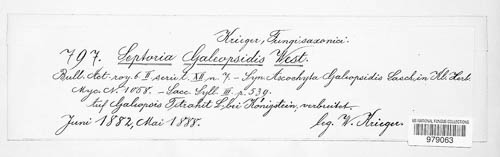 Krieger, Fungi saxonici.
797. Septoria Galeopsidis West.
Bull. Act. roy. b. II. serie t. XII n. 7. – Syn. Ascochyta Galeopsidis Lasch in Kl. Herb.
Myc. N. 1058. – Sacc. Syll. III. p. 539.
Auf Galeopsis Tetrahit L. bei Königstein, verbreitet.
Juni 1882, Mai 1888. leg. W. Krieger.
US NATIONAL FUNGUS COLLECTIONS
979063